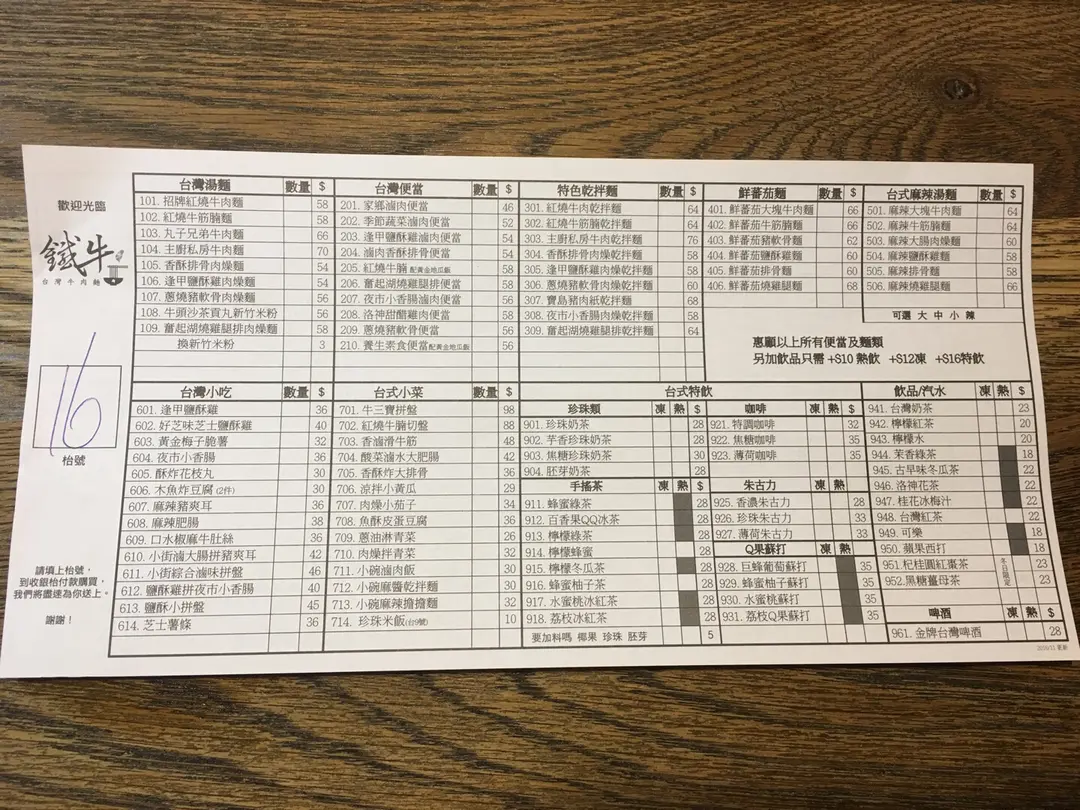 歡迎光臨
鐵牛
台灣牛肉麵
16
枱號
請填上枱號,
到收銀枱付款購買,
我們將盡速為你送上。
謝謝!
台灣湯麵 數量 $
101. 招牌紅燒牛肉麵 58
102. 紅燒牛筋腩麵 58
103. 丸子兄弟牛肉麵 66
104. 主廚私房牛肉麵 70
105. 香酥排骨肉燥麵 54
106. 逢甲鹽酥雞肉燥麵 54
107. 蔥燒豬軟骨肉燥麵 56
108. 牛頭沙茶貢丸新竹米粉 56
109. 奮起湖燒雞腿排肉燥麵 58
換新竹米粉 3
台灣便當 數量 $
201. 家鄉滷肉便當 46
202. 季節蔬菜滷肉便當 52
203. 逢甲鹽酥雞滷肉便當 54
204. 滷肉香酥排骨便當 54
205. 紅燒牛腩 配黃金地瓜飯 58
206. 奮起湖燒雞腿滷肉便當 58
207. 夜市小香腸滷肉便當 56
208. 洛神甜醋雞肉便當 58
209. 蔥燒豬軟骨便當 56
210. 養生素食便當配黃金地瓜飯 56
特色乾拌麵 數量 $
301. 紅燒牛肉乾拌麵 64
302. 紅燒牛筋腩乾拌麵 64
303. 主廚私房牛肉乾拌麵 76
304. 香酥排骨肉燥乾拌麵 58
305. 逢甲鹽酥雞肉燥乾拌麵 58
306. 蔥燒豬軟骨肉燥乾拌麵 60
307. 寶島豬肉紙乾拌麵 68
308. 夜市小香腸肉燥乾拌麵 58
309. 奮起湖燒雞腿乾拌麵 64
鮮蕃茄麵 數量 $
401. 鮮蕃茄大塊牛肉麵 66
402. 鮮蕃茄牛筋腩麵 66
403. 鮮蕃茄豬軟骨麵 62
404. 鮮蕃茄鹽酥雞麵 60
405. 鮮蕃茄排骨麵 60
406. 鮮蕃茄燒雞腿麵 68
台式麻辣湯麵 數量 $
501. 麻辣大塊牛肉麵 64
502. 麻辣牛筋腩麵 64
503. 麻辣大腸肉燥麵 60
504. 麻辣鹽酥雞麵 58
505. 麻辣排骨麵 58
506. 麻辣燒雞腿麵 66
可選 大 中 小 辣
惠顧以上所有便當及麵類
另加飲品只需 +$10 熱飲 +$12凍 +$16特飲
台灣小吃 數量 $
601. 逢甲鹽酥雞 36
602. 好芝味芝士鹽酥雞 40
603. 黃金梅子脆薯 32
604. 夜市小香腸 36
605. 酥炸花枝丸 30
606. 木魚炸豆腐 (2件) 30
607. 麻辣豬爽耳 36
608. 麻辣肥腸 38
609. 口水椒麻牛肚絲 36
610. 小街滷大腸拼豬爽耳 42
611. 小街綜合滷味拼盤 46
612. 鹽酥雞拼夜市小香腸 40
613. 鹽酥小拼盤 45
614. 芝士薯條 36
台式小菜 數量 $
701. 牛三寶拼盤 98
702. 紅燒牛腩切盤 88
703. 香滷滑牛筋 48
704. 酸菜滷水大肥腸 42
705. 香酥炸大排骨 36
706. 涼拌小黃瓜 29
707. 肉燥小茄子 34
708. 魚酥皮蛋豆腐 36
709. 蔥油淋青菜 26
710. 肉燥拌青菜 32
711. 小碗滷肉飯 30
712. 小碗麻醬乾拌麵 30
713. 小碗麻辣擔擔麵 32
714. 珍珠米飯(台9號) 10
台式特飲
珍珠類 凍 熱 $
901. 珍珠奶茶 28
902. 芋香珍珠奶茶 28
903. 焦糖珍珠奶茶 30
904. 胚芽奶茶 28
手搖茶 凍 熱 $
911. 蜂蜜綠茶 28
912. 百香果QQ冰茶 28
913. 檸檬綠茶 28
914. 檸檬蜂蜜 28
915. 檸檬冬瓜茶 28
916. 蜂蜜柚子茶 28
917. 水蜜桃冰紅茶 28
918. 荔枝冰紅茶 28
要加料嗎 椰果 珍珠 胚芽 5
咖啡 凍 熱 $
921. 特調咖啡 32
922. 焦糖咖啡 35
923. 薄荷咖啡 35
朱古力 凍 熱 $
925. 香濃朱古力 28
926. 珍珠朱古力 33
927. 薄荷朱古力 33
Q果蘇打 凍 熱 $
928. 巨蜂葡萄蘇打 35
929. 蜂蜜柚子蘇打 35
930. 水蜜桃蘇打 35
931. 荔枝Q果蘇打 35
飲品/汽水 凍 熱 $
941. 台灣奶茶 23
942. 檸檬紅茶 20
943. 檸檬水 20
944. 茉香綠茶 18
945. 古早味冬瓜茶 22
946. 洛神花茶 22
947. 桂花冰梅汁 22
948. 台灣紅茶 22
949. 可樂 18
950. 蘋果西打 18
951. 杞桂圓紅棗茶 23
952. 黑糖薑母茶 23
冬日限定
啤酒 凍 熱 $
961. 金牌台灣啤酒 28
2016/11 更新